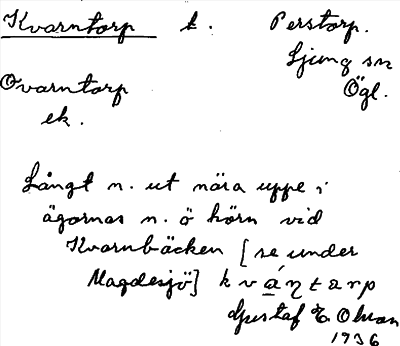 Kvarntorp t. Perstorp.
Ljung sn
Ögl.
Qvarntorp
ek.
Långt n. ut nära uppe i
ägornas n. ö hörn vid
Kvarnbäcken [se under
Magdesjö] k v á̱ ɳ t a r p
Gustaf E Olson
1936